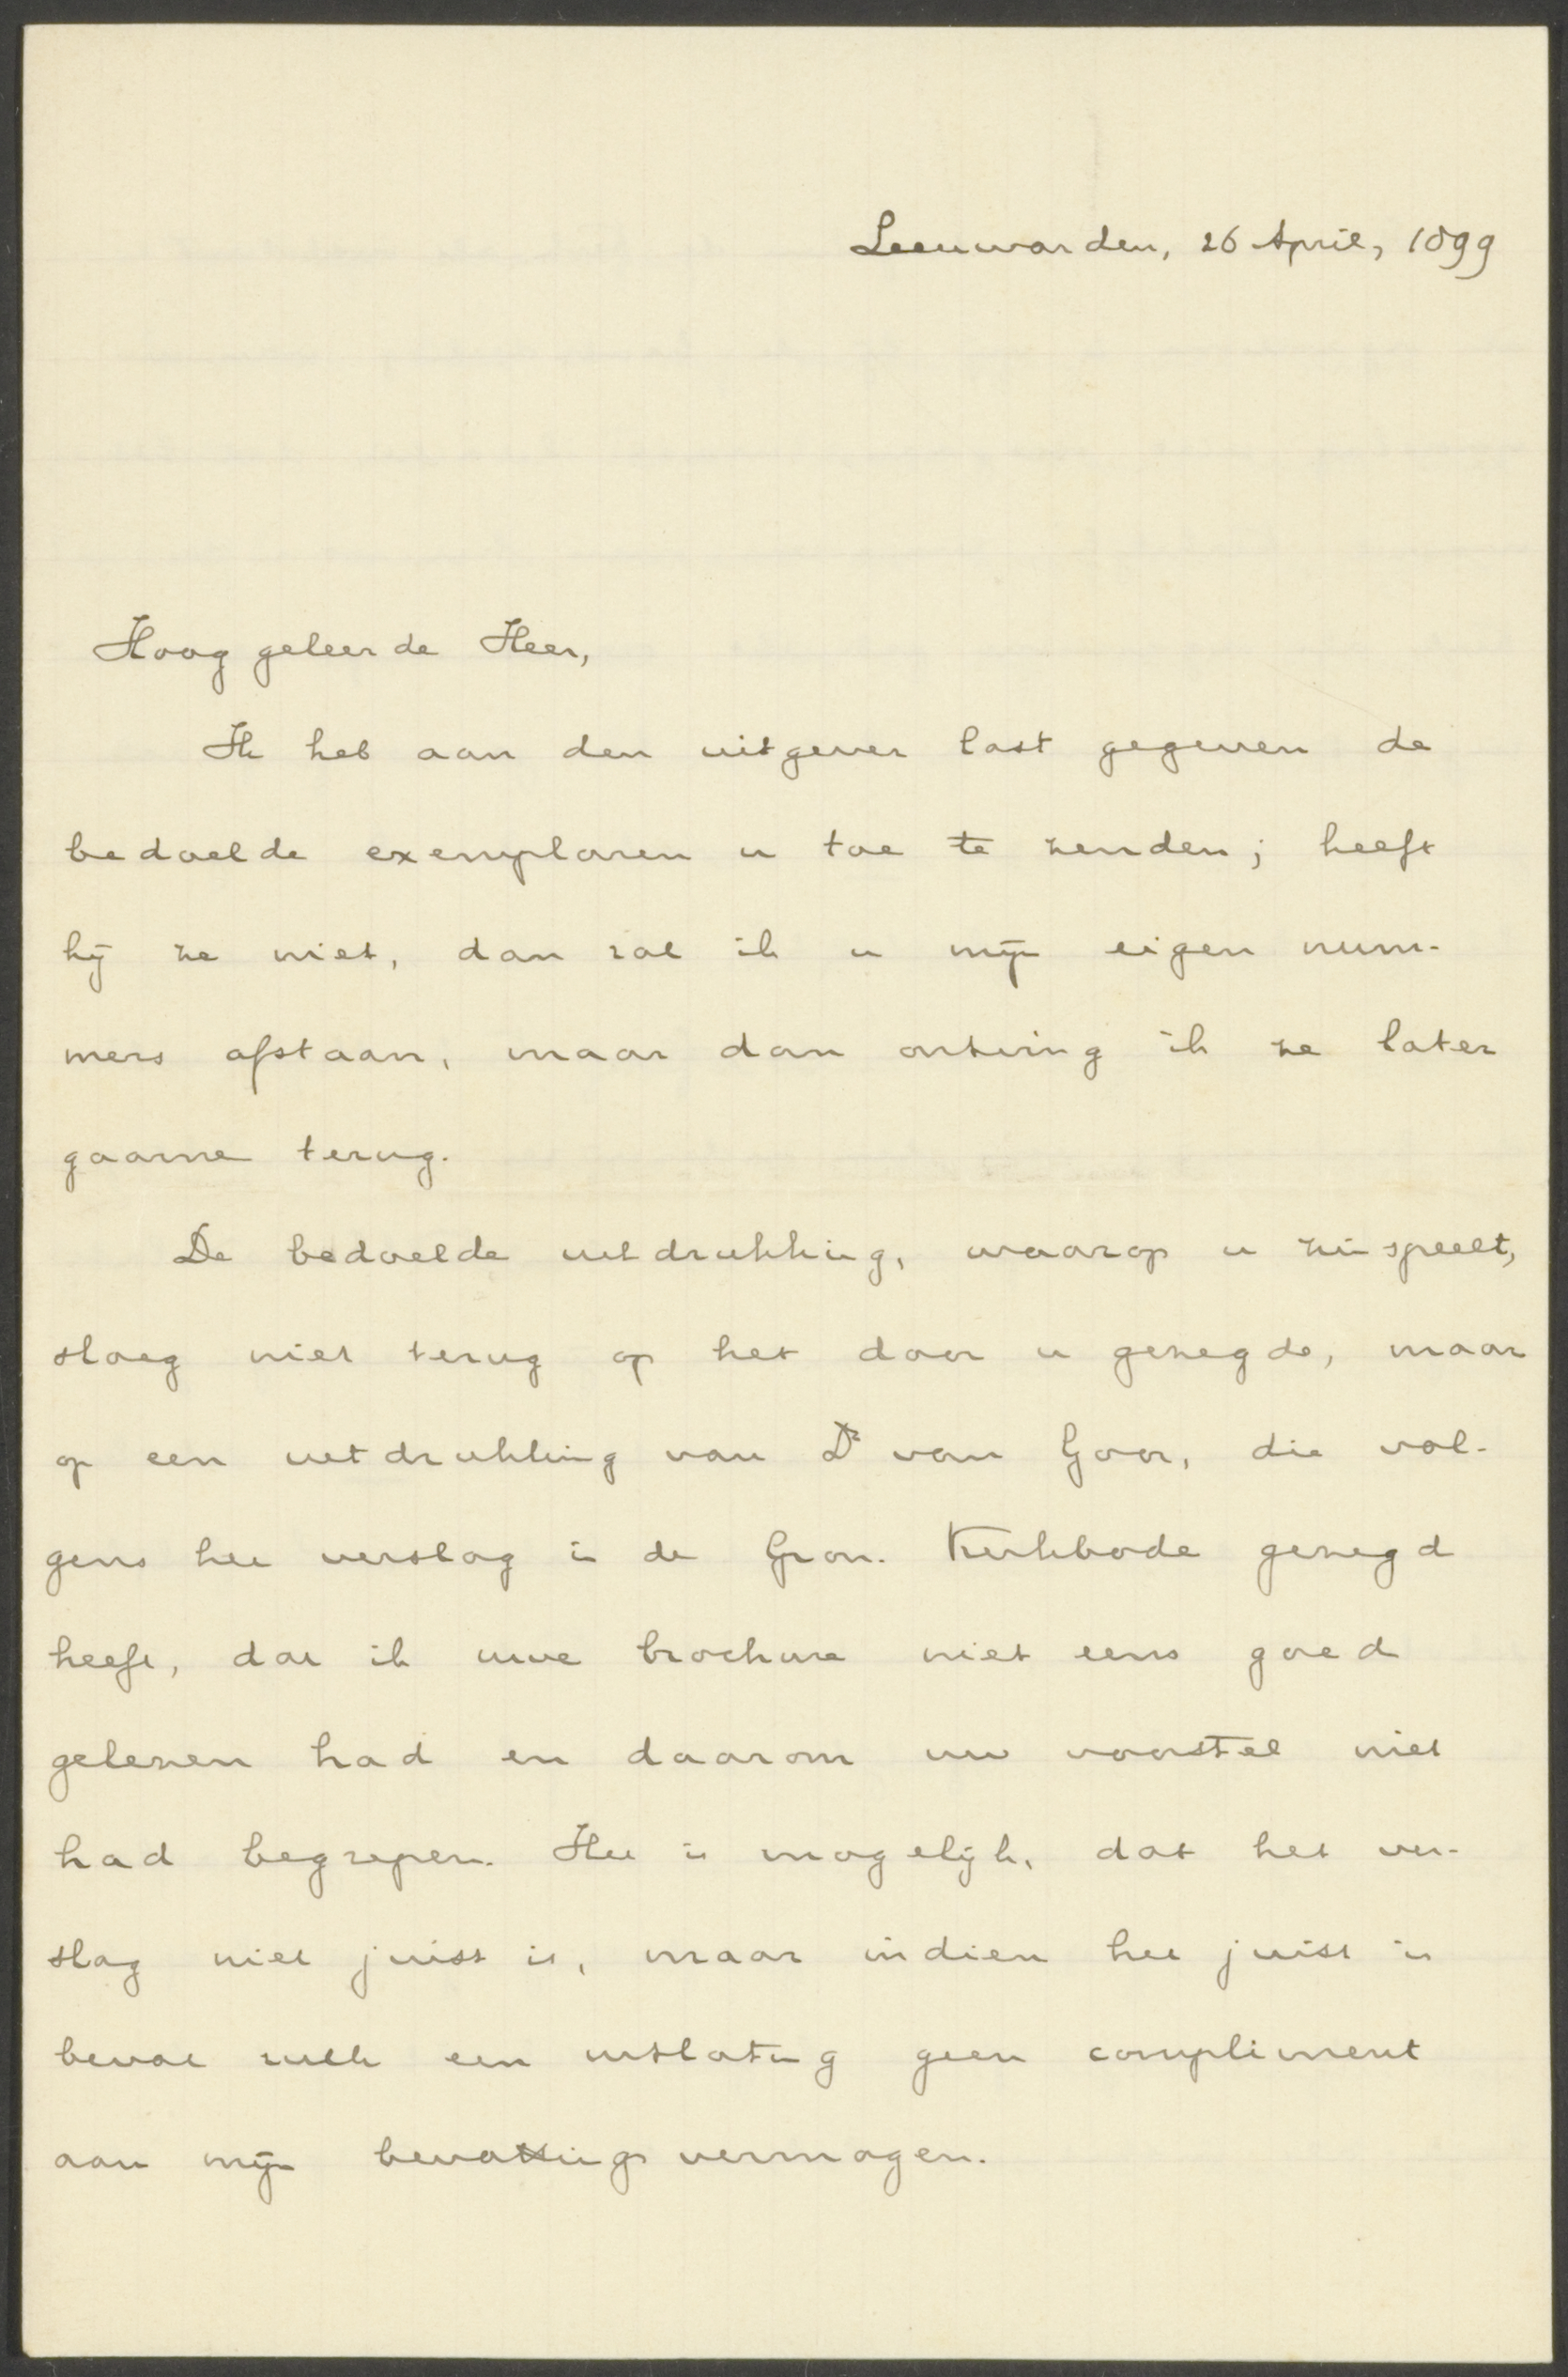 Leeuwarden, 26 April, 1899
Hooggeleerde Heer,
Ik heb aan den uitgever last gegeven de
bedoelde exemplaren u toe te zenden; heeft
hij ze niet, dan zal ik u mijn eigen num-
mers afstaan, maar dan ontving ik ze later
gaarne terug.
De bedoelde uitdrukking, waarop u zinspeelt,
sloeg niet terug op het door u gezegde, maar
op een uitdrukking van Dr van Goor, die vol-
gens het verslag in de Gron. Kerkbode gezegd
heeft, dat ik uwe brochure niet eens goed
gelezen had en daarom uw voorstel niet
had begrepen. Het is mogelijk, dat het ver-
slag niet juist is, maar indien het juist is
bevat zulk een uitlating geen compliment
aan mijn bevattingsvermogen.